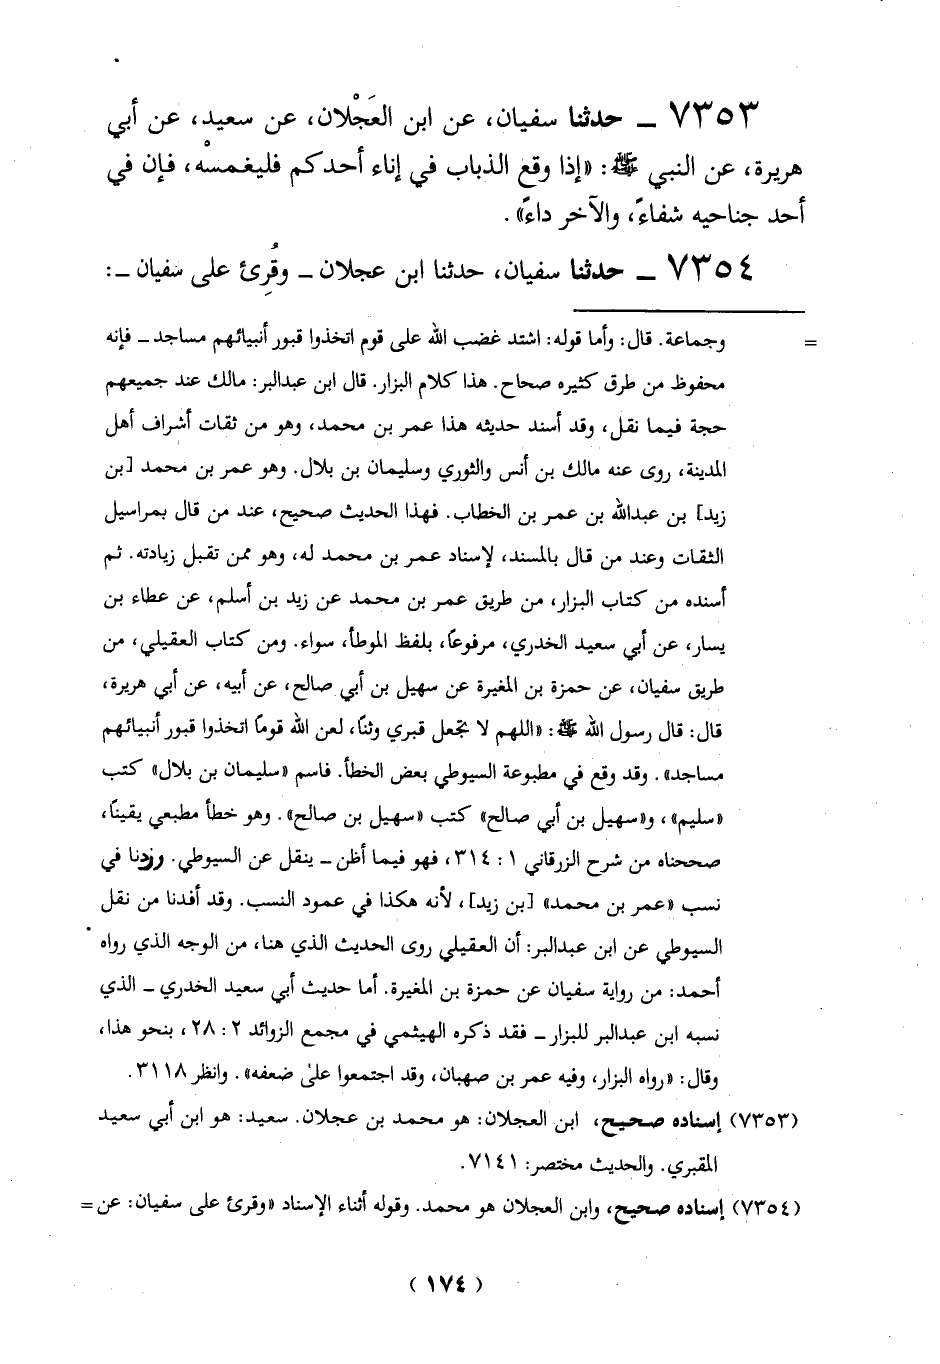 ٧٣٥٣ ــ حدثنا سفيان، عن ابن العَجْلان، عن سعيد، عن أبي
هريرة، عن النبي ﷺ: «إذا وقع الذباب في إناء أحدكم فليغمسْه، فإن في
أحد جناحيه شفاءً، والآخر داءً».
٧٣٥٤ ــ حدثنا سفيان، حدثنا ابن عجلان ــ وقُرِئ على سفيان ــ:
= وجماعة. قال: وأما قوله: اشتد غضب الله على قوم اتخذوا قبور أنبيائهم مساجد ــ فإنه
محفوظ من طرق كثيره صحاح. هذا كلام البزار. قال ابن عبدالبر: مالك عند جميعهم
حجة فيما نقل، وقد أسند حديثه هذا عمر بن محمد، وهو من ثقات أشراف أهل
المدينة، روى عنه مالك بن أنس والثوري وسليمان بن بلال. وهو عمر بن محمد [بن
زيد] بن عبدالله بن عمر بن الخطاب. فهذا الحديث صحيح، عند من قال بمراسيل
الثقات وعند من قال بالمسند، لإسناد عمر بن محمد له، وهو ممن تقبل زيادته. ثم
أسنده من كتاب البزار، من طريق عمر بن محمد عن زيد بن أسلم، عن عطاء بن
يسار، عن أبي سعيد الخدري، مرفوعاً، بلفظ الموطأ، سواء. ومن كتاب العقيلي، من
طريق سفيان، عن حمزة بن المغيرة عن سهيل بن أبي صالح، عن أبيه، عن أبي هريرة،
قال: قال رسول الله ﷺ: «اللهم لا تجعل قبري وثناً، لعن الله قوماً اتخذوا قبور أنبيائهم
مساجد». وقد وقع في مطبوعة السيوطي بعض الخطأ. فاسم «سليمان بن بلال» كتب
«سليم»، و«سهيل بن أبي صالح» كتب «سهيل بن صالح». وهو خطأ مطبعي يقيناً،
صححناه من شرح الزرقاني ١ : ٣١٤، فهو فيما أظن ــ ينقل عن السيوطي. وزدنا في
نسب «عمر بن محمد» [بن زيد]، لأنه هكذا في عمود النسب. وقد أفدنا من نقل
السيوطي عن ابن عبدالبر: أن العقيلي روى الحديث الذي هنا، من الوجه الذي رواه
أحمد: من رواية سفيان عن حمزة بن المغيرة. أما حديث أبي سعيد الخدري ــ الذي
نسبه ابن عبدالبر للبزار ــ فقد ذكره الهيثمي في مجمع الزوائد ٢ : ٢٨، بنحو هذا،
وقال: «رواه البزار، وفيه عمر بن صهبان، وقد اجتمعوا على ضعفه». وانظر ٣١١٨.
(٧٣٥٣) إسناده صحيح، ابن العجلان: هو محمد بن عجلان. سعيد: هو ابن أبي سعيد
المقبري. والحديث مختصر: ٧١٤١.
(٧٣٥٤) إسناده صحيح، وابن العجلان هو محمد. وقوله أثناء الإسناد «وقرئ على سفيان: عن =
(١٧٤)